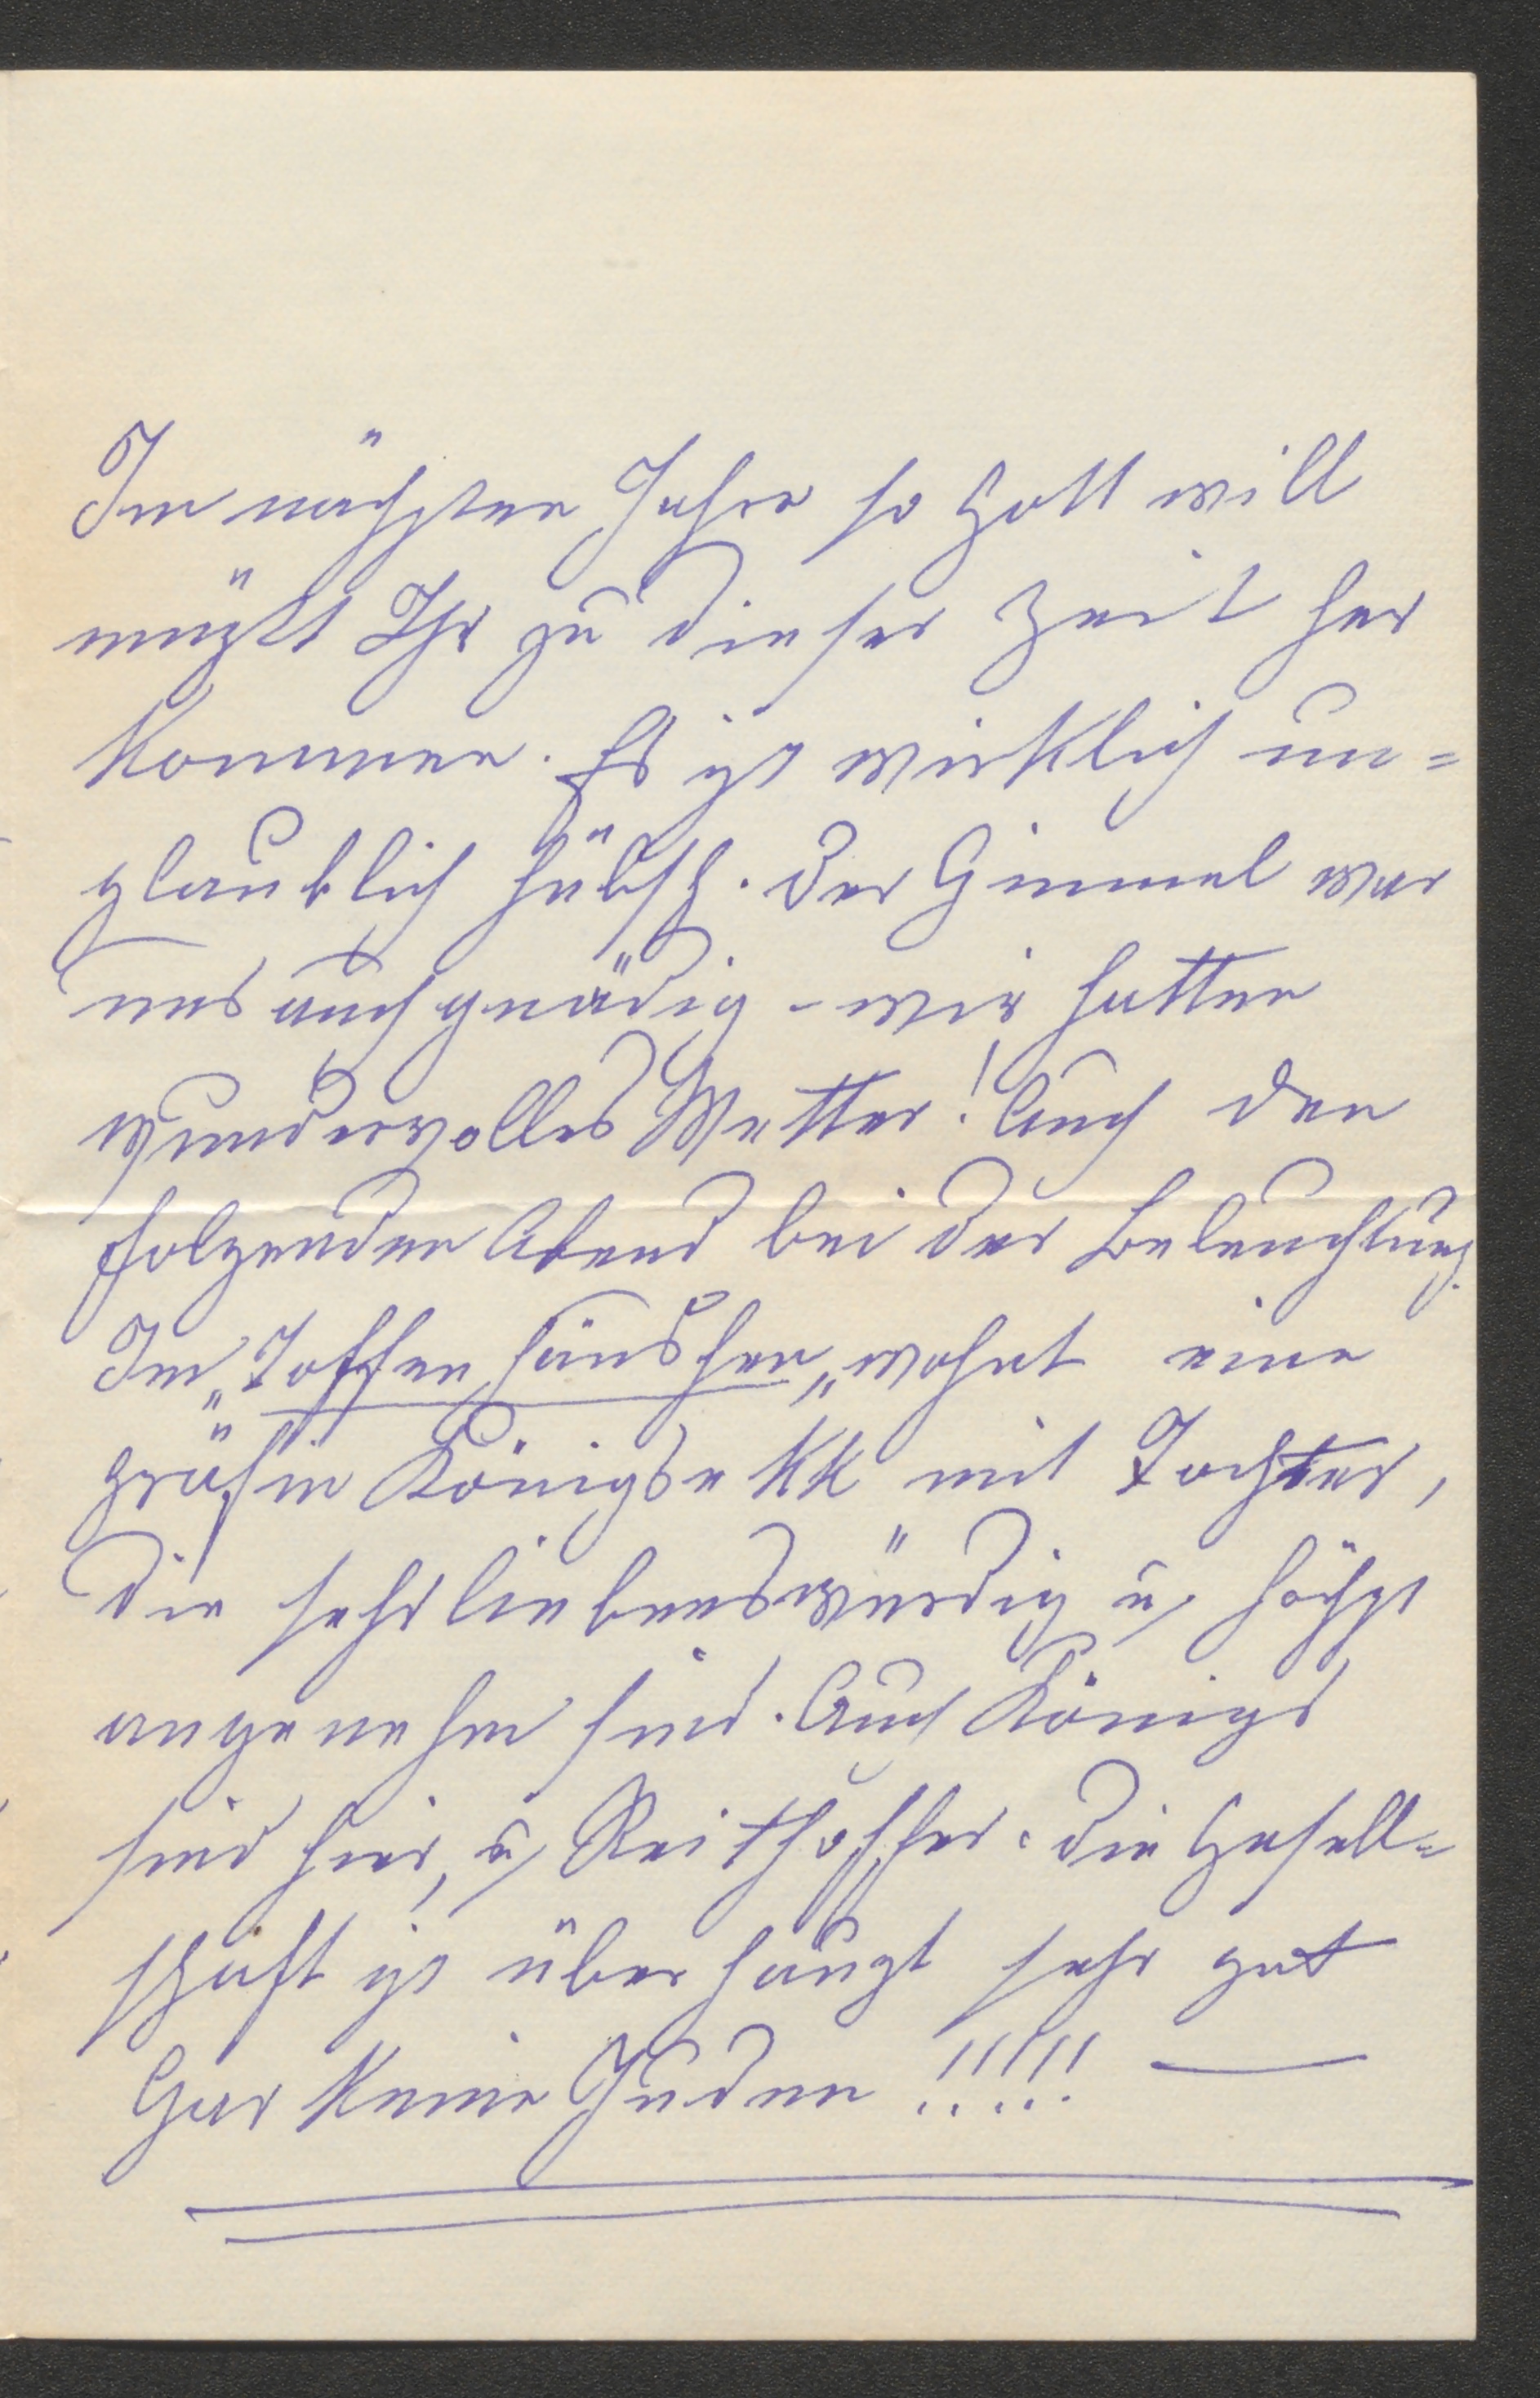 Im nächsten Jahre so Gott will
müßt Ihr zu dieser Zeit her
kommen. Es ist wirklich un=
glaublich hübsch. Der Himmel war
uns auch gnädig - wir hatten
wundervolles Wetter! Auch den
folgenden Abend bei der Beleuchtung.
Im „Toffen häuschen„ wohnt eine
Gräfin Königsekk mit Tochter,
die sehr liebenswürdig u. höchst
angenehm sind. Auch Königs
sind hier, u. Reithoffer. Die Gesell=
schaft ist überhaupt sehr gut
Gar keine Juden !!!!! —